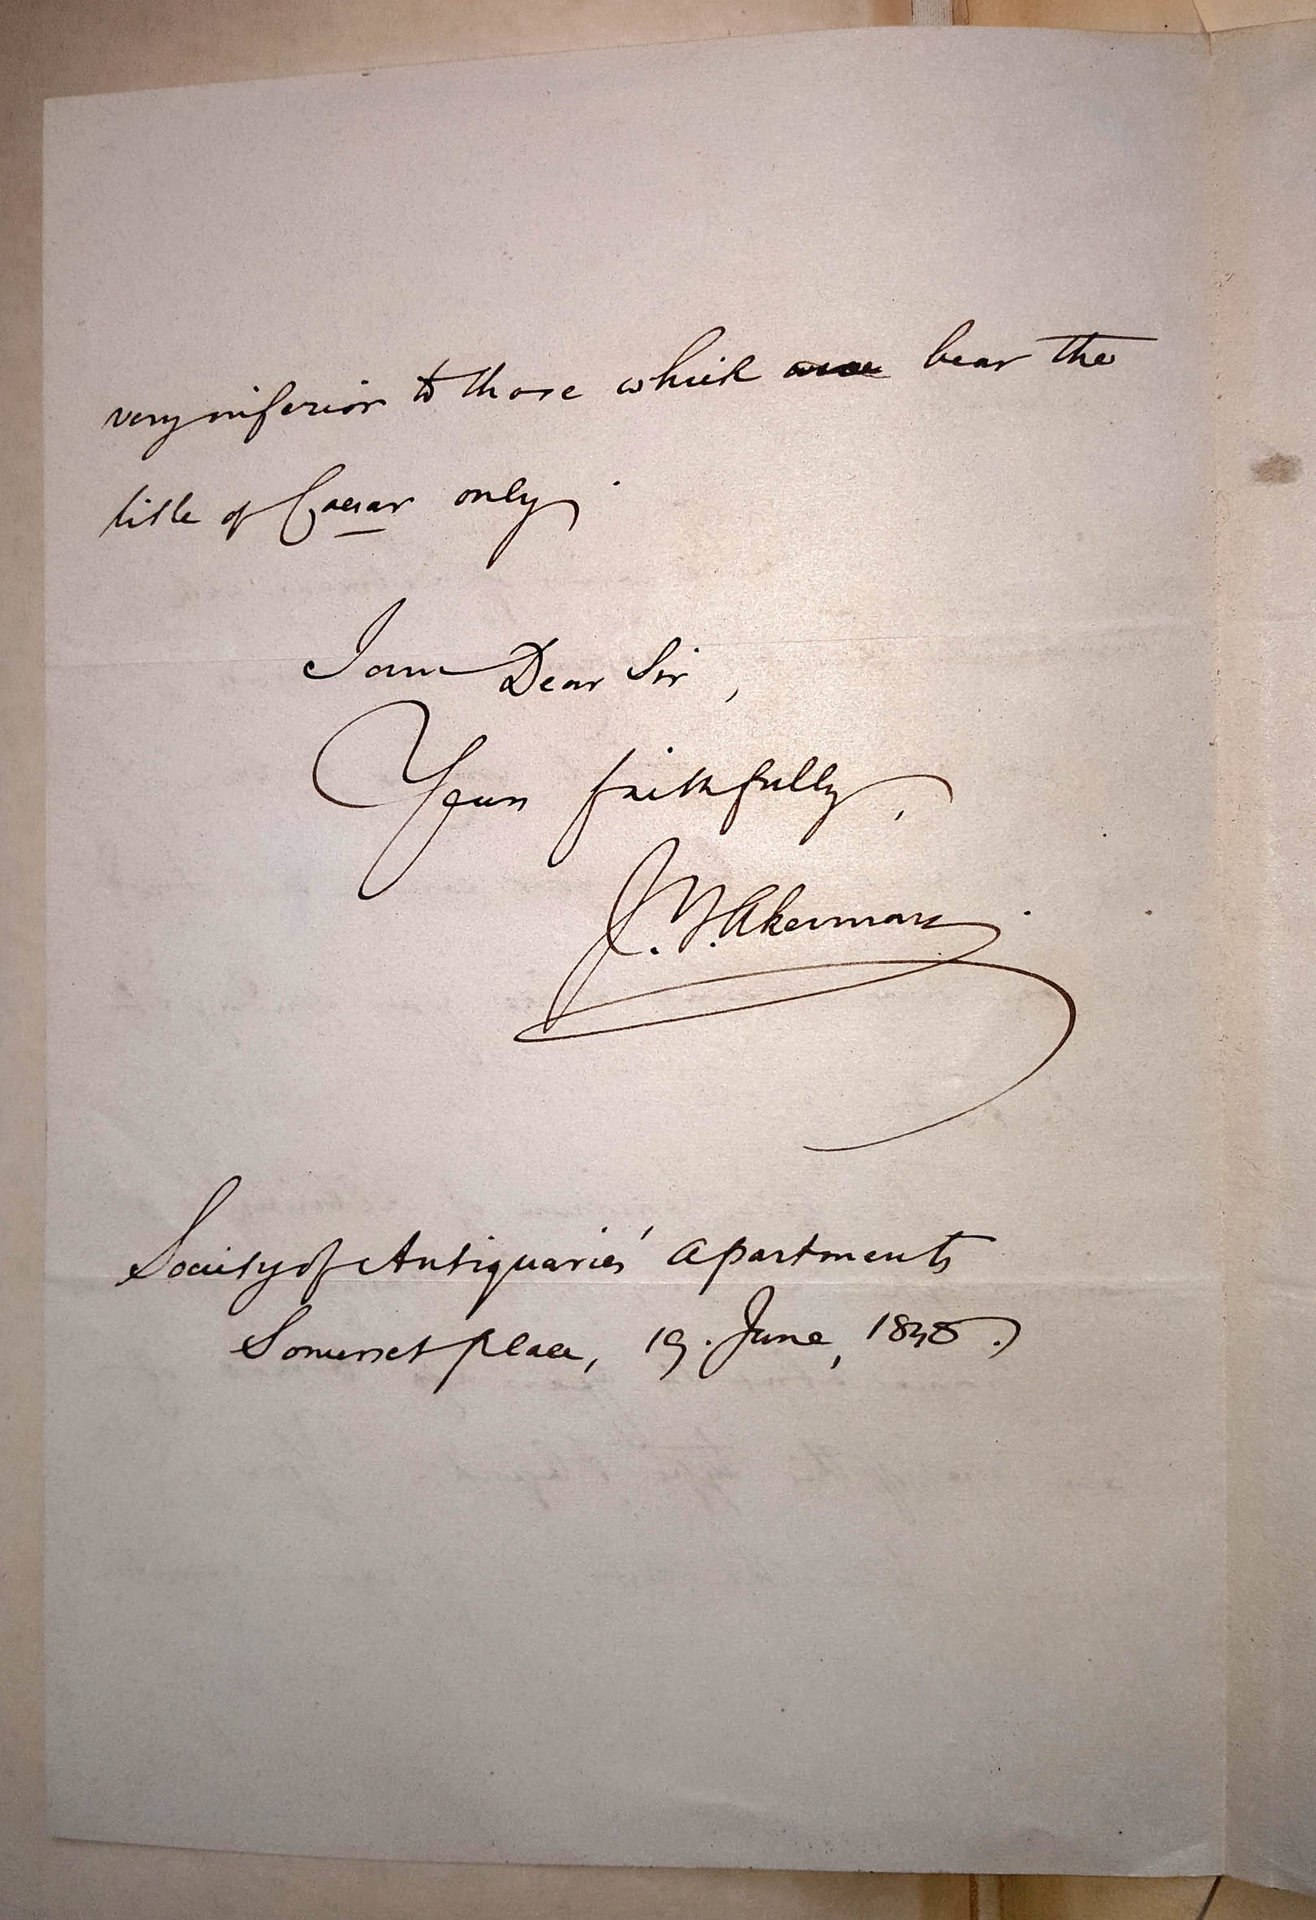 very inferior to those which bear the
title of Caesar only.
I am Dear Sir,
Yours faithfully,
J. Y. Akerman.
Society of Antiquaries' Apartments
Somerset Place, 19. June, 1848.